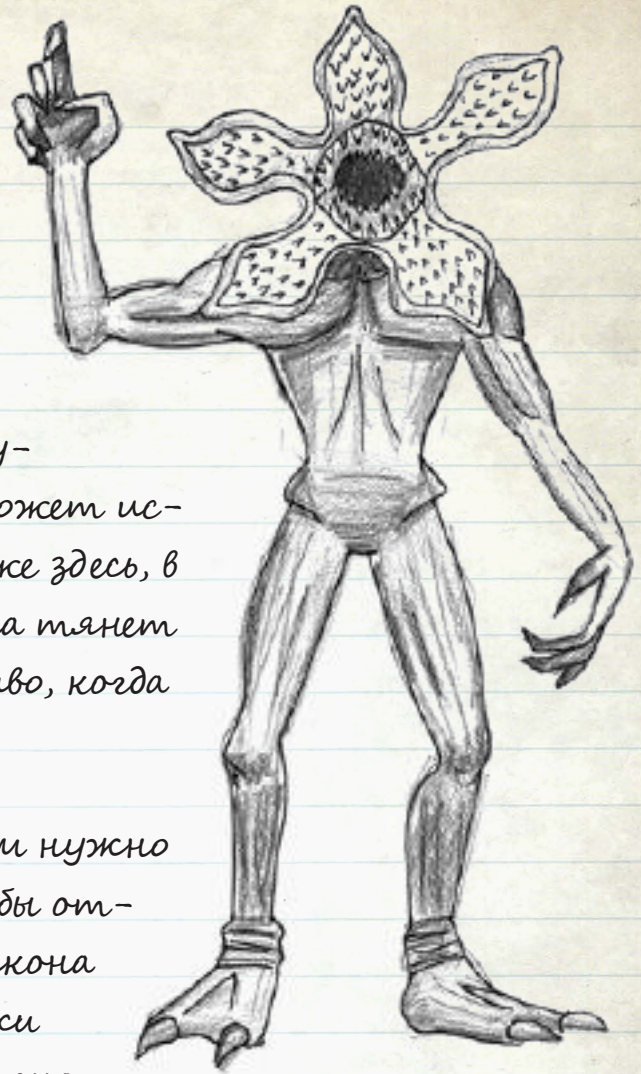 у-
ожет ис-
же здесь, в
а тянет
во, когда
м нужно
бы от-
кона
си